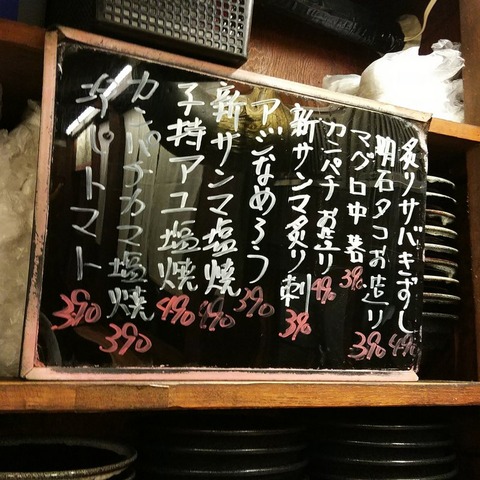 炙りサバきずし 490
明石タコお造り 390
マグロ中落 390
カンパチお造り 490
新サンマ炙り刺 390
アジなめろう 390
新サンマ塩焼 490
子持アユ塩焼 490
カンパチカマ塩焼 390
トマト 390